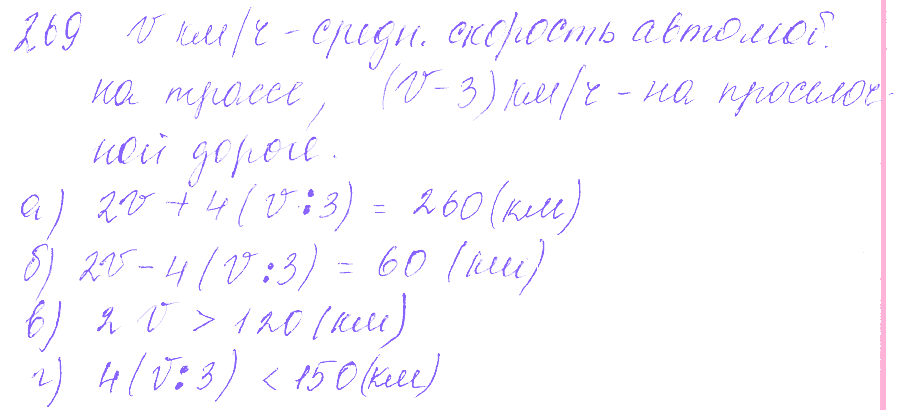 269 v км/ч - средн. скорость автомоб.
на трассе, (v - 3) км/ч - на просёлоч-
ной дороге.
а) 2v + 4(v : 3) = 260 (км)
б) 2v - 4(v : 3) = 60 (км)
в) 2v > 120 (км)
г) 4(v : 3) < 150 (км)